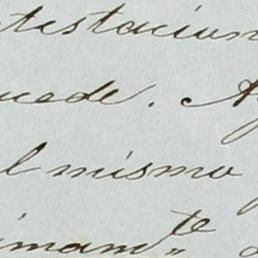 testacion
uede. A
l mismo
imamte